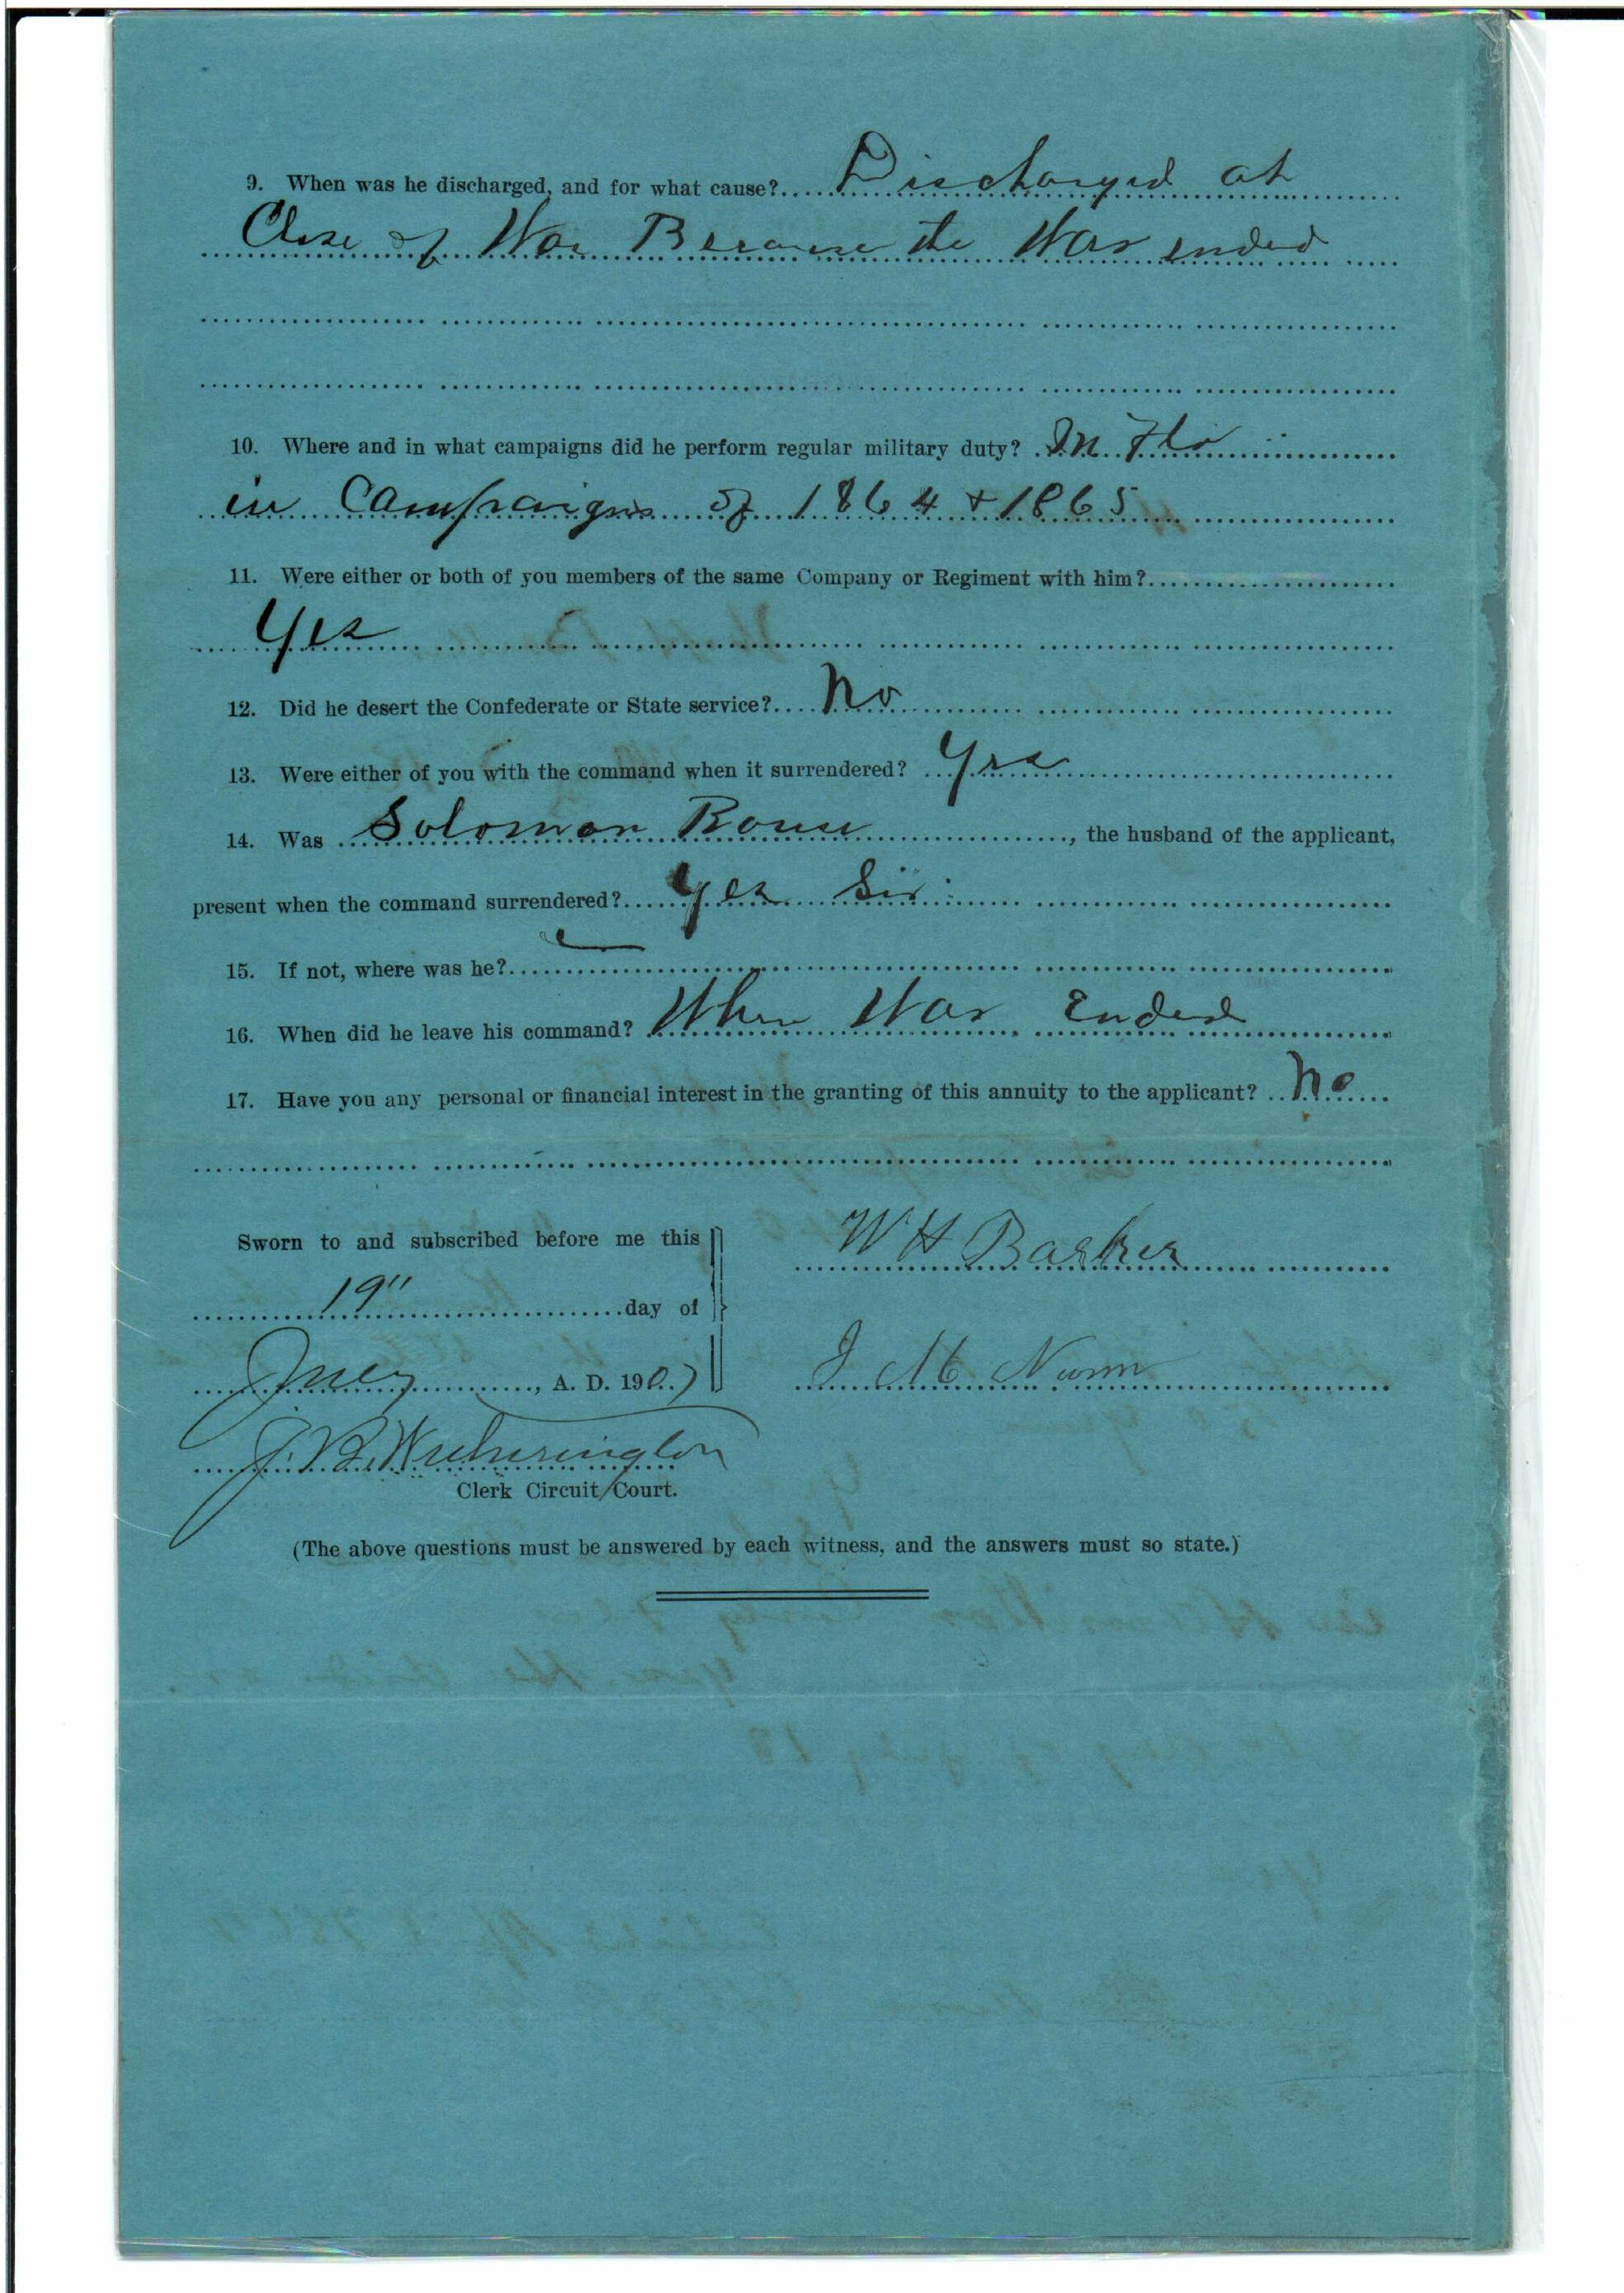 9. When was he discharged, and for what cause? Discharged at
Close of War Because the War ended
10. Where and in what campaigns did he perform regular military duty? In Fla
in Campaigns of 1864 + 1865
11. Were either or both of you members of the same Company or Regiment with him?
Yes
12. Did he desert the Confederate or State service? No
13. Were either of you with the command when it surrendered? Yes
14. Was Solomon Rouse, the husband of the applicant,
present when the command surrendered? Yes Sir
15. If not, where was he?
16. When did he leave his command? When War Ended
17. Have you any personal or financial interest in the granting of this annuity to the applicant? No
Sworn to and subscribed before me this
W H Barker
19" day of
July, A. D. 1907
J M Nunn
J. B. Wetherington
Clerk Circuit Court.
(The above questions must be answered by each witness, and the answers must so state.)